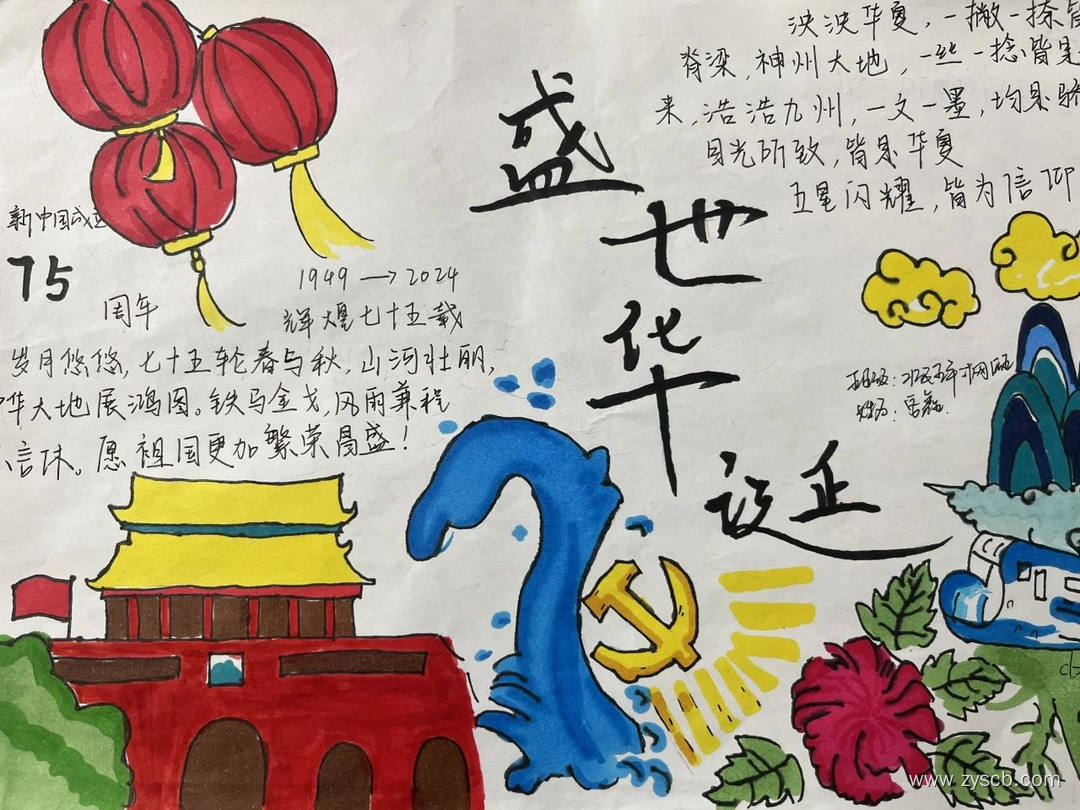 盛世华诞
泱泱华夏，一撇一捺皆
脊梁，神州大地，一丝一捻皆是
来，浩浩九州，一文一墨，均是骄
目光所致，皆是华夏
五星闪耀，皆为信仰
新中国成立
75
周年
1949 → 2024
辉煌七十五载
岁月悠悠，七十五轮春与秋，山河壮丽，
华大地展鸿图。铁马金戈，风雨兼程
信休。愿祖国更加繁荣昌盛！
班级：
姓名：
www.zyscb.com